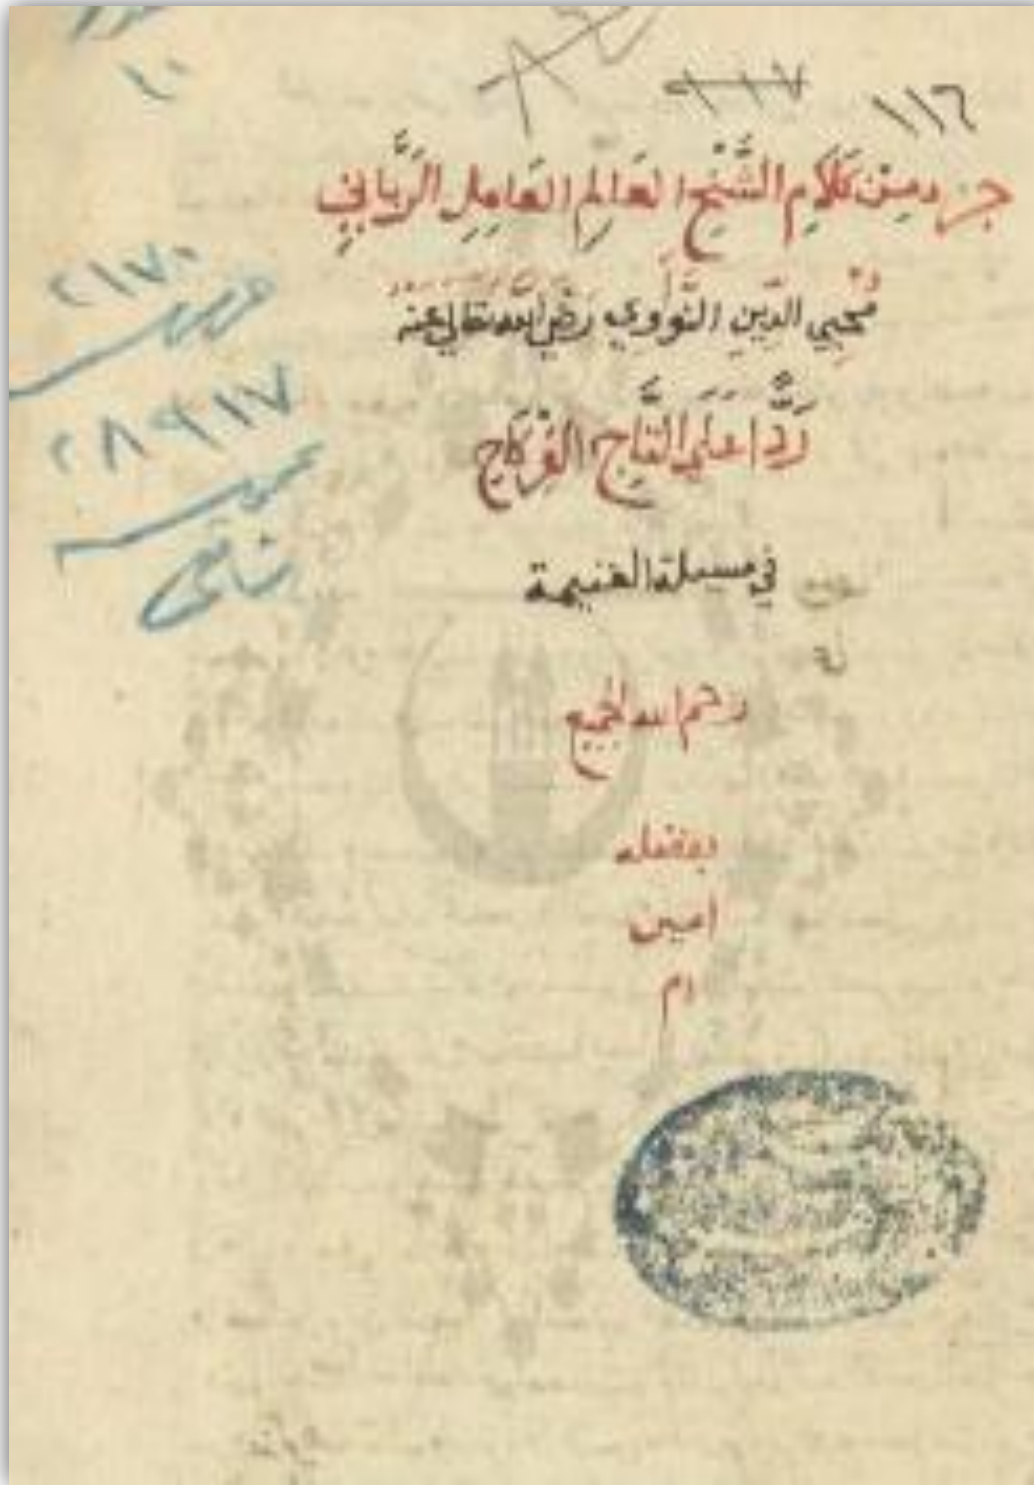 ١٠
٩١٧
١١٦
جزء من كَلَامِ الشَّيْخِ العَالِمِ العَامِلِ الرَّبَّانِي
مُحْيِي الدِّينِ النَّوَوِي رَضِيَ اللَّه تَعَالَى عَنْهُ
رَدًّا عَلَى التَّاجِ الفِرْكَاحِ
في مسيلة الغنيمة
رحم الله الجميع
بفضله
امين
ام
٢١٧٠
عمومية
٢٨٩١٧
خصوصية
شافعى